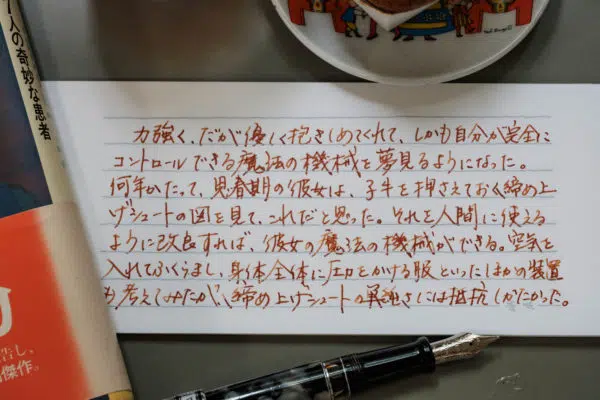 7人の奇妙な患者
力強く、だが優しく抱きしめてくれて、しかも自分が完全に
コントロールできる魔法の機械を夢見るようになった。
何年かたって、思春期の彼女は、子牛を押さえておく締め上
げシュートの図を見て、これだと思った。それを人間に使える
ように改良すれば、彼女の魔法の機械ができる。空気を
入れてふくらまし、身体全体に圧力をかける服といったほかの装置
も考えてみたが、締め上げシュートの単純さには抵抗しがたかった。
告し、
傑作。